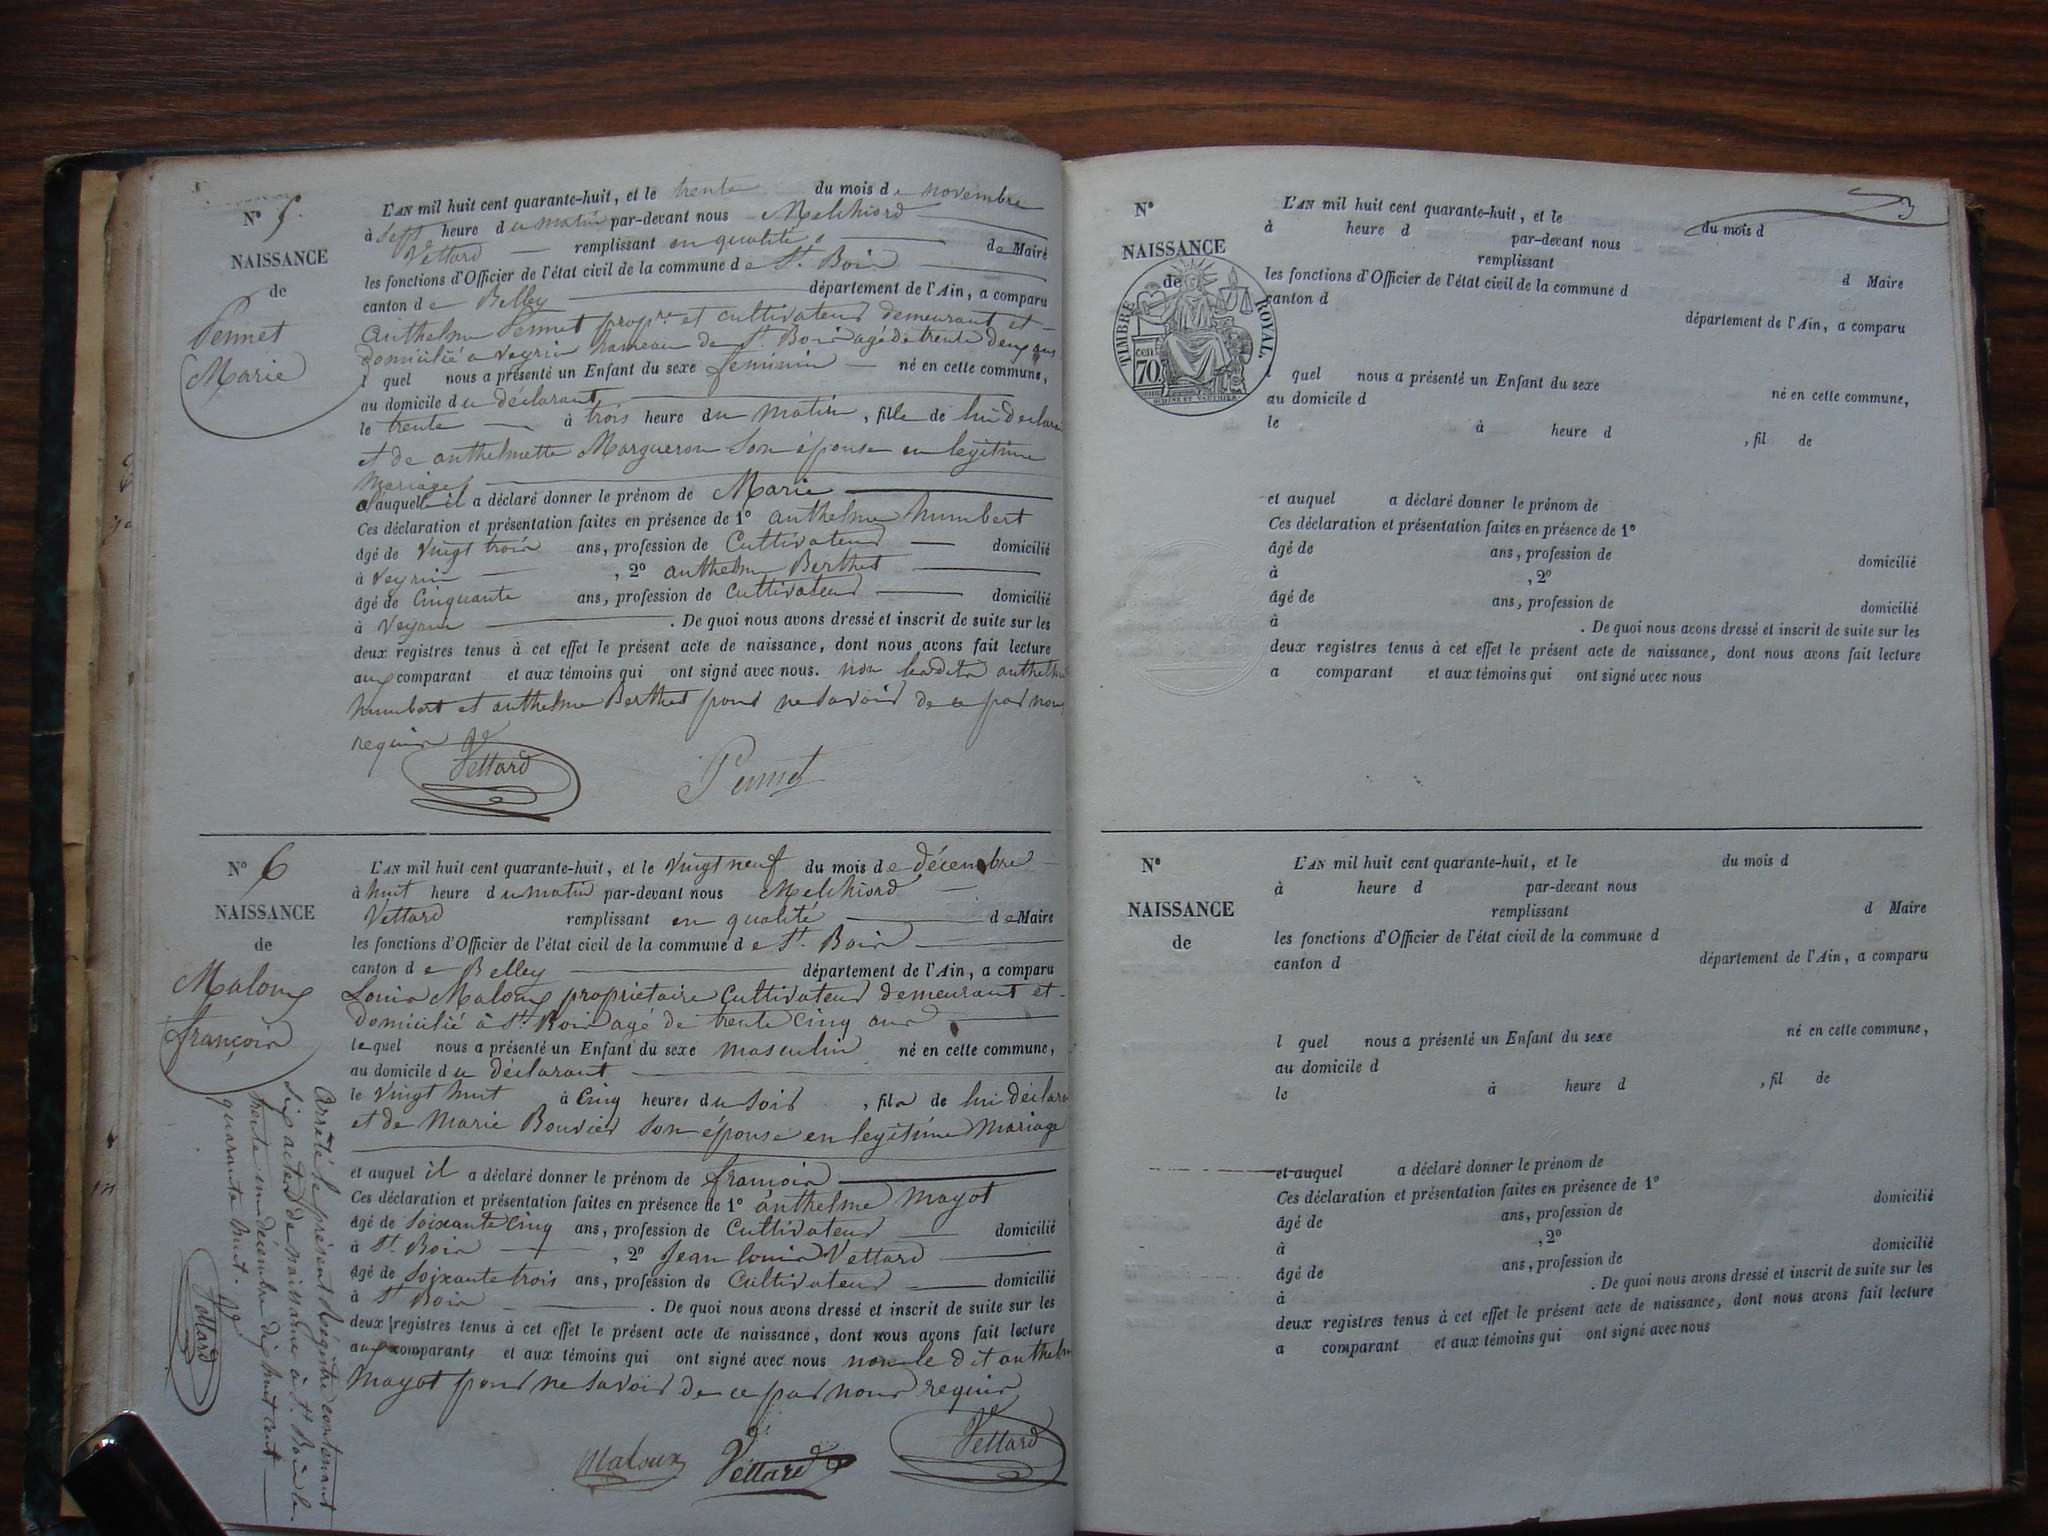 N° 5.
NAISSANCE
de
Pennet
Marie
L'AN mil huit cent quarante-huit, et le trente du mois de novembre
à Sept heure du matin par-devant nous Melchiord
Vettard remplissant en qualité de Maire
les fonctions d'Officier de l'état civil de la commune de St. Bois
canton de Belley département de l'Ain, a comparu
Anthelme Pennet propre et cultivateur demeurant et
domicilié à Veyrin hameau de St. Bois agé de trente deux ans
l quel nous a présenté un Enfant du sexe feminin né en cette commune,
au domicile du déclarant
le trente à trois heure du matin, fille de lui déclara
et de anthelmette Margueron son épouse en legitime
mariage
a laquelle il a déclaré donner le prénom de Marie
Ces déclaration et présentation faites en présence de 1° anthelme humbert
âgé de vingt trois ans, profession de Cultivateur domicilié
à Veyrin , 2° anthelme Berthet
âgé de Cinquante ans, profession de Cultivateur domicilié
à Veyrin . De quoi nous avons dressé et inscrit de suite sur les
deux registres tenus à cet effet le présent acte de naissance, dont nous avons fait lecture
aux comparant et aux témoins qui ont signé avec nous. non lesdits anthelme
humbert et anthelme Berthet pour ne savoir de ce par nous
requis
Vettard Pennet
N° 6
NAISSANCE
de
Maloux
françois
L'AN mil huit cent quarante-huit, et le vingt neuf du mois de décembre
à huit heure du matin par-devant nous Melchiord
Vettard remplissant en qualité de Maire
les fonctions d'Officier de l'état civil de la commune de St. Bois
canton de Belley département de l'Ain, a comparu
Louis Maloux propriétaire Cultivateur demeurant et
domicilié à St. Bois agé de trente cinq ans
le quel nous a présenté un Enfant du sexe masculin né en cette commune,
au domicile du déclarant
le vingt huit à Cinq heures du soir , fils de lui déclara
et de Marie Bouvier son épouse en legitime Mariage
et auquel il a déclaré donner le prénom de françois
Ces déclaration et présentation faites en présence de 1° anthelme Mayot
âgé de Soixante cinq ans, profession de Cultivateur domicilié
à St. Bois , 2° Jean louis Vettard
âgé de Soixante trois ans, profession de Cultivateur domicilié
à St. Bois . De quoi nous avons dressé et inscrit de suite sur les
deux registres tenus à cet effet le présent acte de naissance, dont nous avons fait lecture
aux comparants et aux témoins qui ont signé avec nous non le dit anthelme
Mayot pour ne savoir de ce par nous requis
Maloux Vettard Vettard
Arrêté le présent Régistre contenant
six actes de naissance à St. Bois le
trente un décembre dix huit cent
quarante huit.
Vettard
3
N°
NAISSANCE
de
TIMBRE ROYAL
70 cent
L'AN mil huit cent quarante-huit, et le du mois d
à heure d par-devant nous
remplissant d Maire
les fonctions d'Officier de l'état civil de la commune d
canton d département de l'Ain, a comparu
l quel nous a présenté un Enfant du sexe né en cette commune,
au domicile d
le à heure d , fil de
et auquel a déclaré donner le prénom de
Ces déclaration et présentation faites en présence de 1°
âgé de ans, profession de domicilié
à , 2°
âgé de ans, profession de domicilié
à . De quoi nous avons dressé et inscrit de suite sur les
deux registres tenus à cet effet le présent acte de naissance, dont nous avons fait lecture
a comparant et aux témoins qui ont signé avec nous
N°
NAISSANCE
de
L'AN mil huit cent quarante-huit, et le du mois d
à heure d par-devant nous
remplissant d Maire
les fonctions d'Officier de l'état civil de la commune d
canton d département de l'Ain, a comparu
l quel nous a présenté un Enfant du sexe né en cette commune,
au domicile d
le à heure d , fil de
et auquel a déclaré donner le prénom de
Ces déclaration et présentation faites en présence de 1°
âgé de ans, profession de domicilié
à , 2°
âgé de ans, profession de domicilié
à . De quoi nous avons dressé et inscrit de suite sur les
deux registres tenus à cet effet le présent acte de naissance, dont nous avons fait lecture
a comparant et aux témoins qui ont signé avec nous